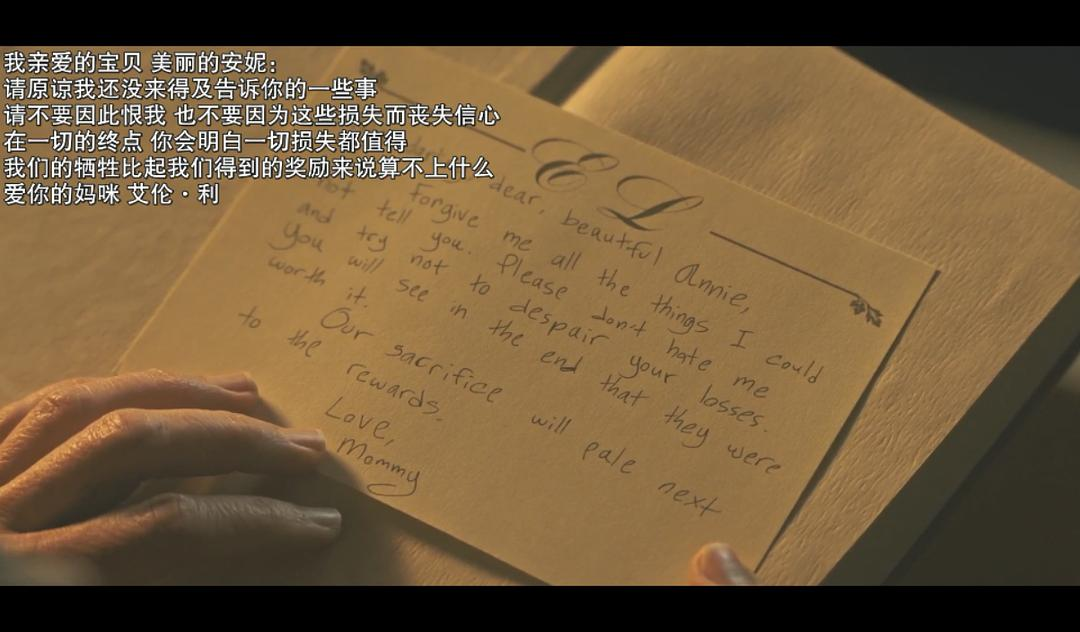 我亲爱的宝贝 美丽的安妮：
请原谅我还没来得及告诉你的一些事
请不要因此恨我 也不要因为这些损失而丧失信心
在一切的终点 你会明白一切损失都值得
我们的牺牲比起我们得到的奖励来说算不上什么
爱你的妈咪 艾伦·利
EL
dear, beautiful Annie,
Forgive me all the things I could
not tell you. Please don't hate me
and try not to despair your losses.
You will see in the end that they were
worth it.
Our sacrifice will pale next
to the rewards.
Love,
Mommy